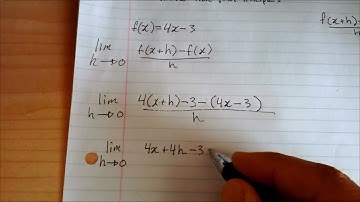 f(x)=4x-3
lim h→0 f(x+h)-f(x) / h
f(x+h)-
lim h→0 4(x+h)-3-(4x-3) / h
lim h→0 4x+4h-3